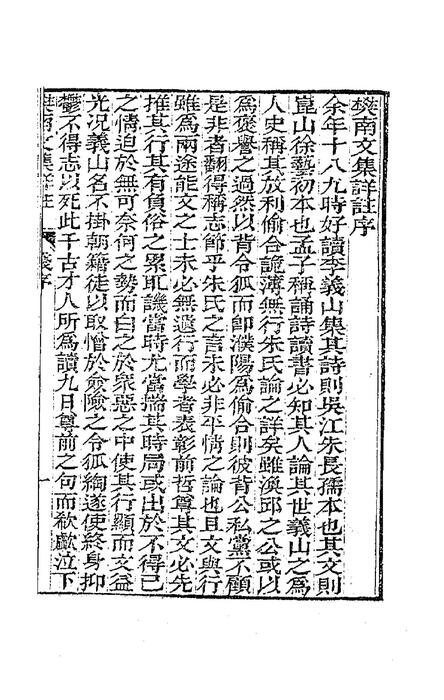 樊南文集詳註序
余年十八九時好讀李義山集其詩則吳江朱長孺本也其文則
崑山徐藝初本也孟子稱誦詩讀書必知其人論其世義山之為
人史稱其放利偷合詭薄無行朱氏論之詳矣雖渙邱之公或以
為褒譽之過然以背令狐而卽濮陽為偷合則彼背公私黨不顧
是非者翻得稱志節乎朱氏之言未必非平情之論也且文與行
雖為兩途能文之士未必無遺行而學者表彰前哲尊其文必先
推其行其有負俗之累厎譏當時尤當揣其時局或出於不得已
之情迫於無可奈何之勢而白之於衆惡之中使其行顯而文益
光况義山名不掛朝籍徒以取憎於僉險之令狐綯遂使終身抑
鬱不得志以死此千古才人所為讀九日尊前之句而欷歔泣下
樊南文集詳註 錢序 一